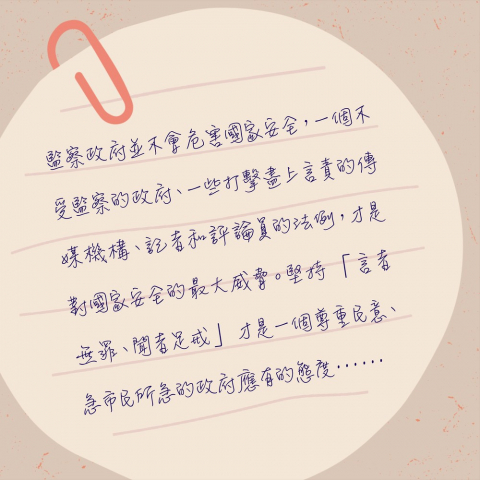 監察政府並不會危害國家安全，一個不
受監察的政府、一些打擊盡上言責的傳
媒機構、記者和評論員的法例，才是
對國家安全的最大威脅。堅持「言者
無罪、聞者足戒」才是一個尊重民意、
急市民所急的政府應有的態度⋯⋯